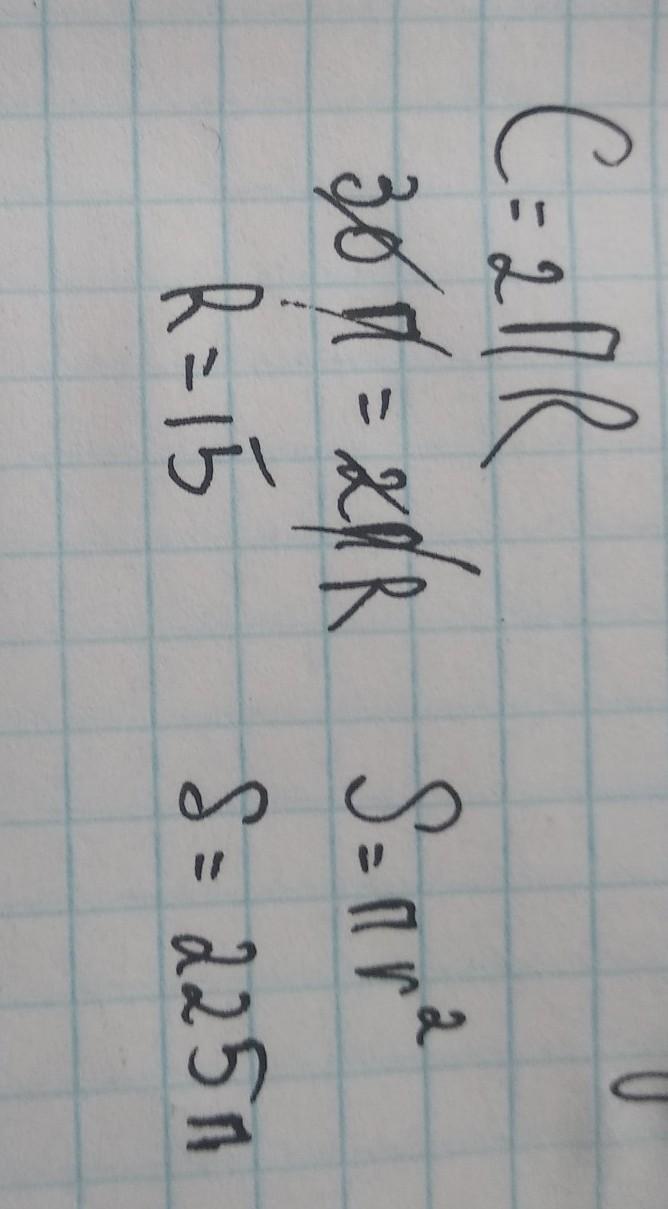 C = 2πR
30π = 2πR
R = 15
S = πr²
S = 225π